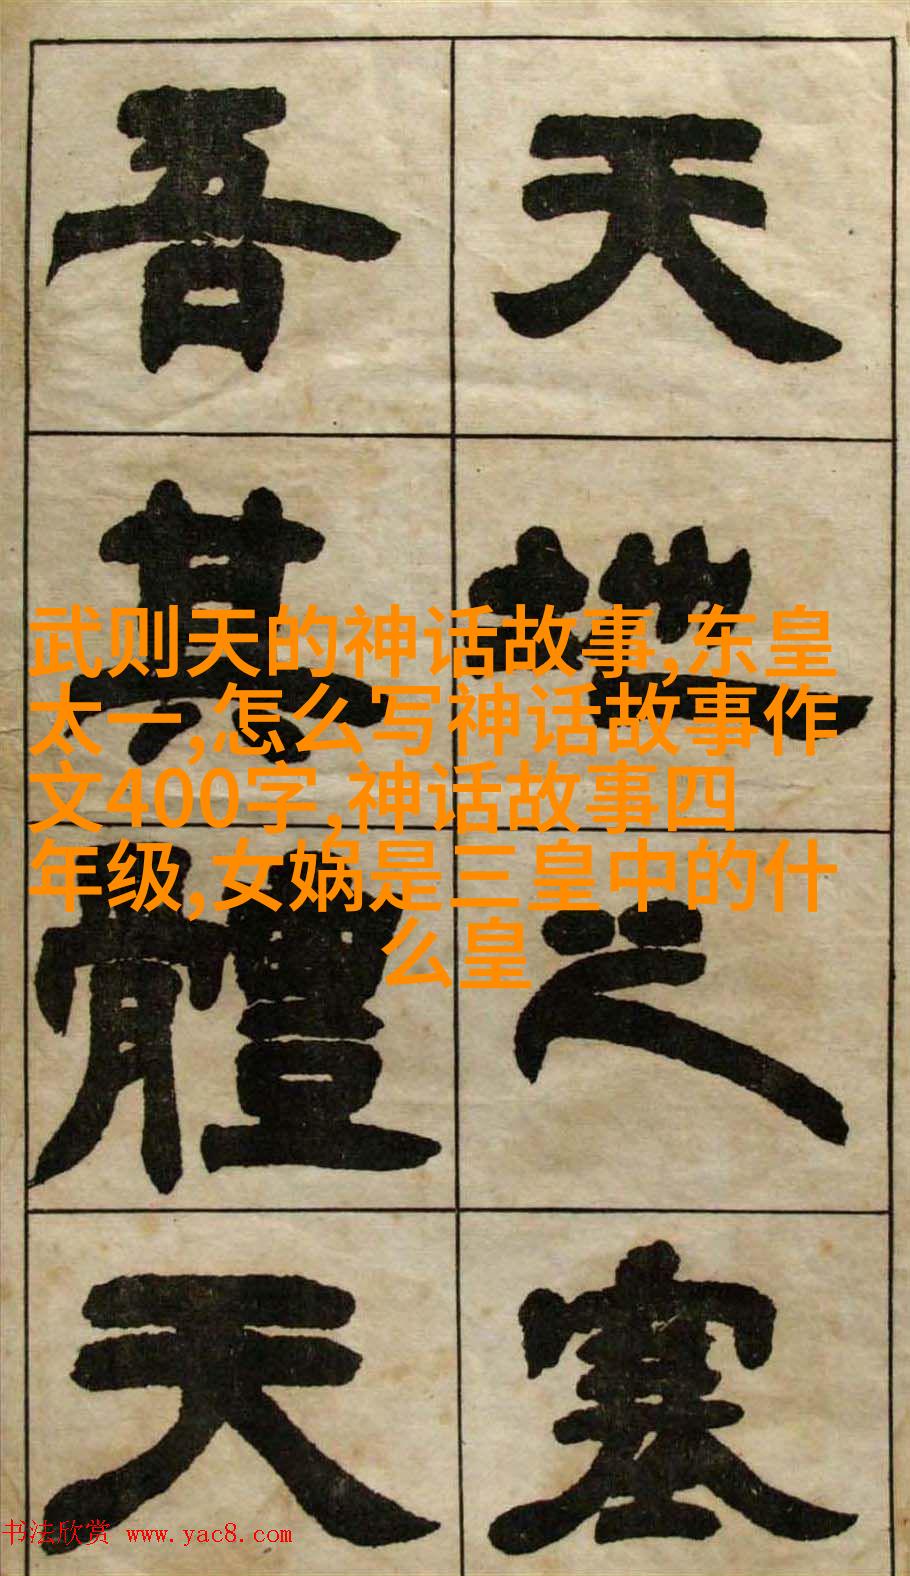 天地之塞
吾其體天
武则天的神话故事,东皇
太一,怎么写神话故事作
文400字,神话故事四
年级,女娲是三皇中的什
么皇
书法欣赏 www.yac8.com